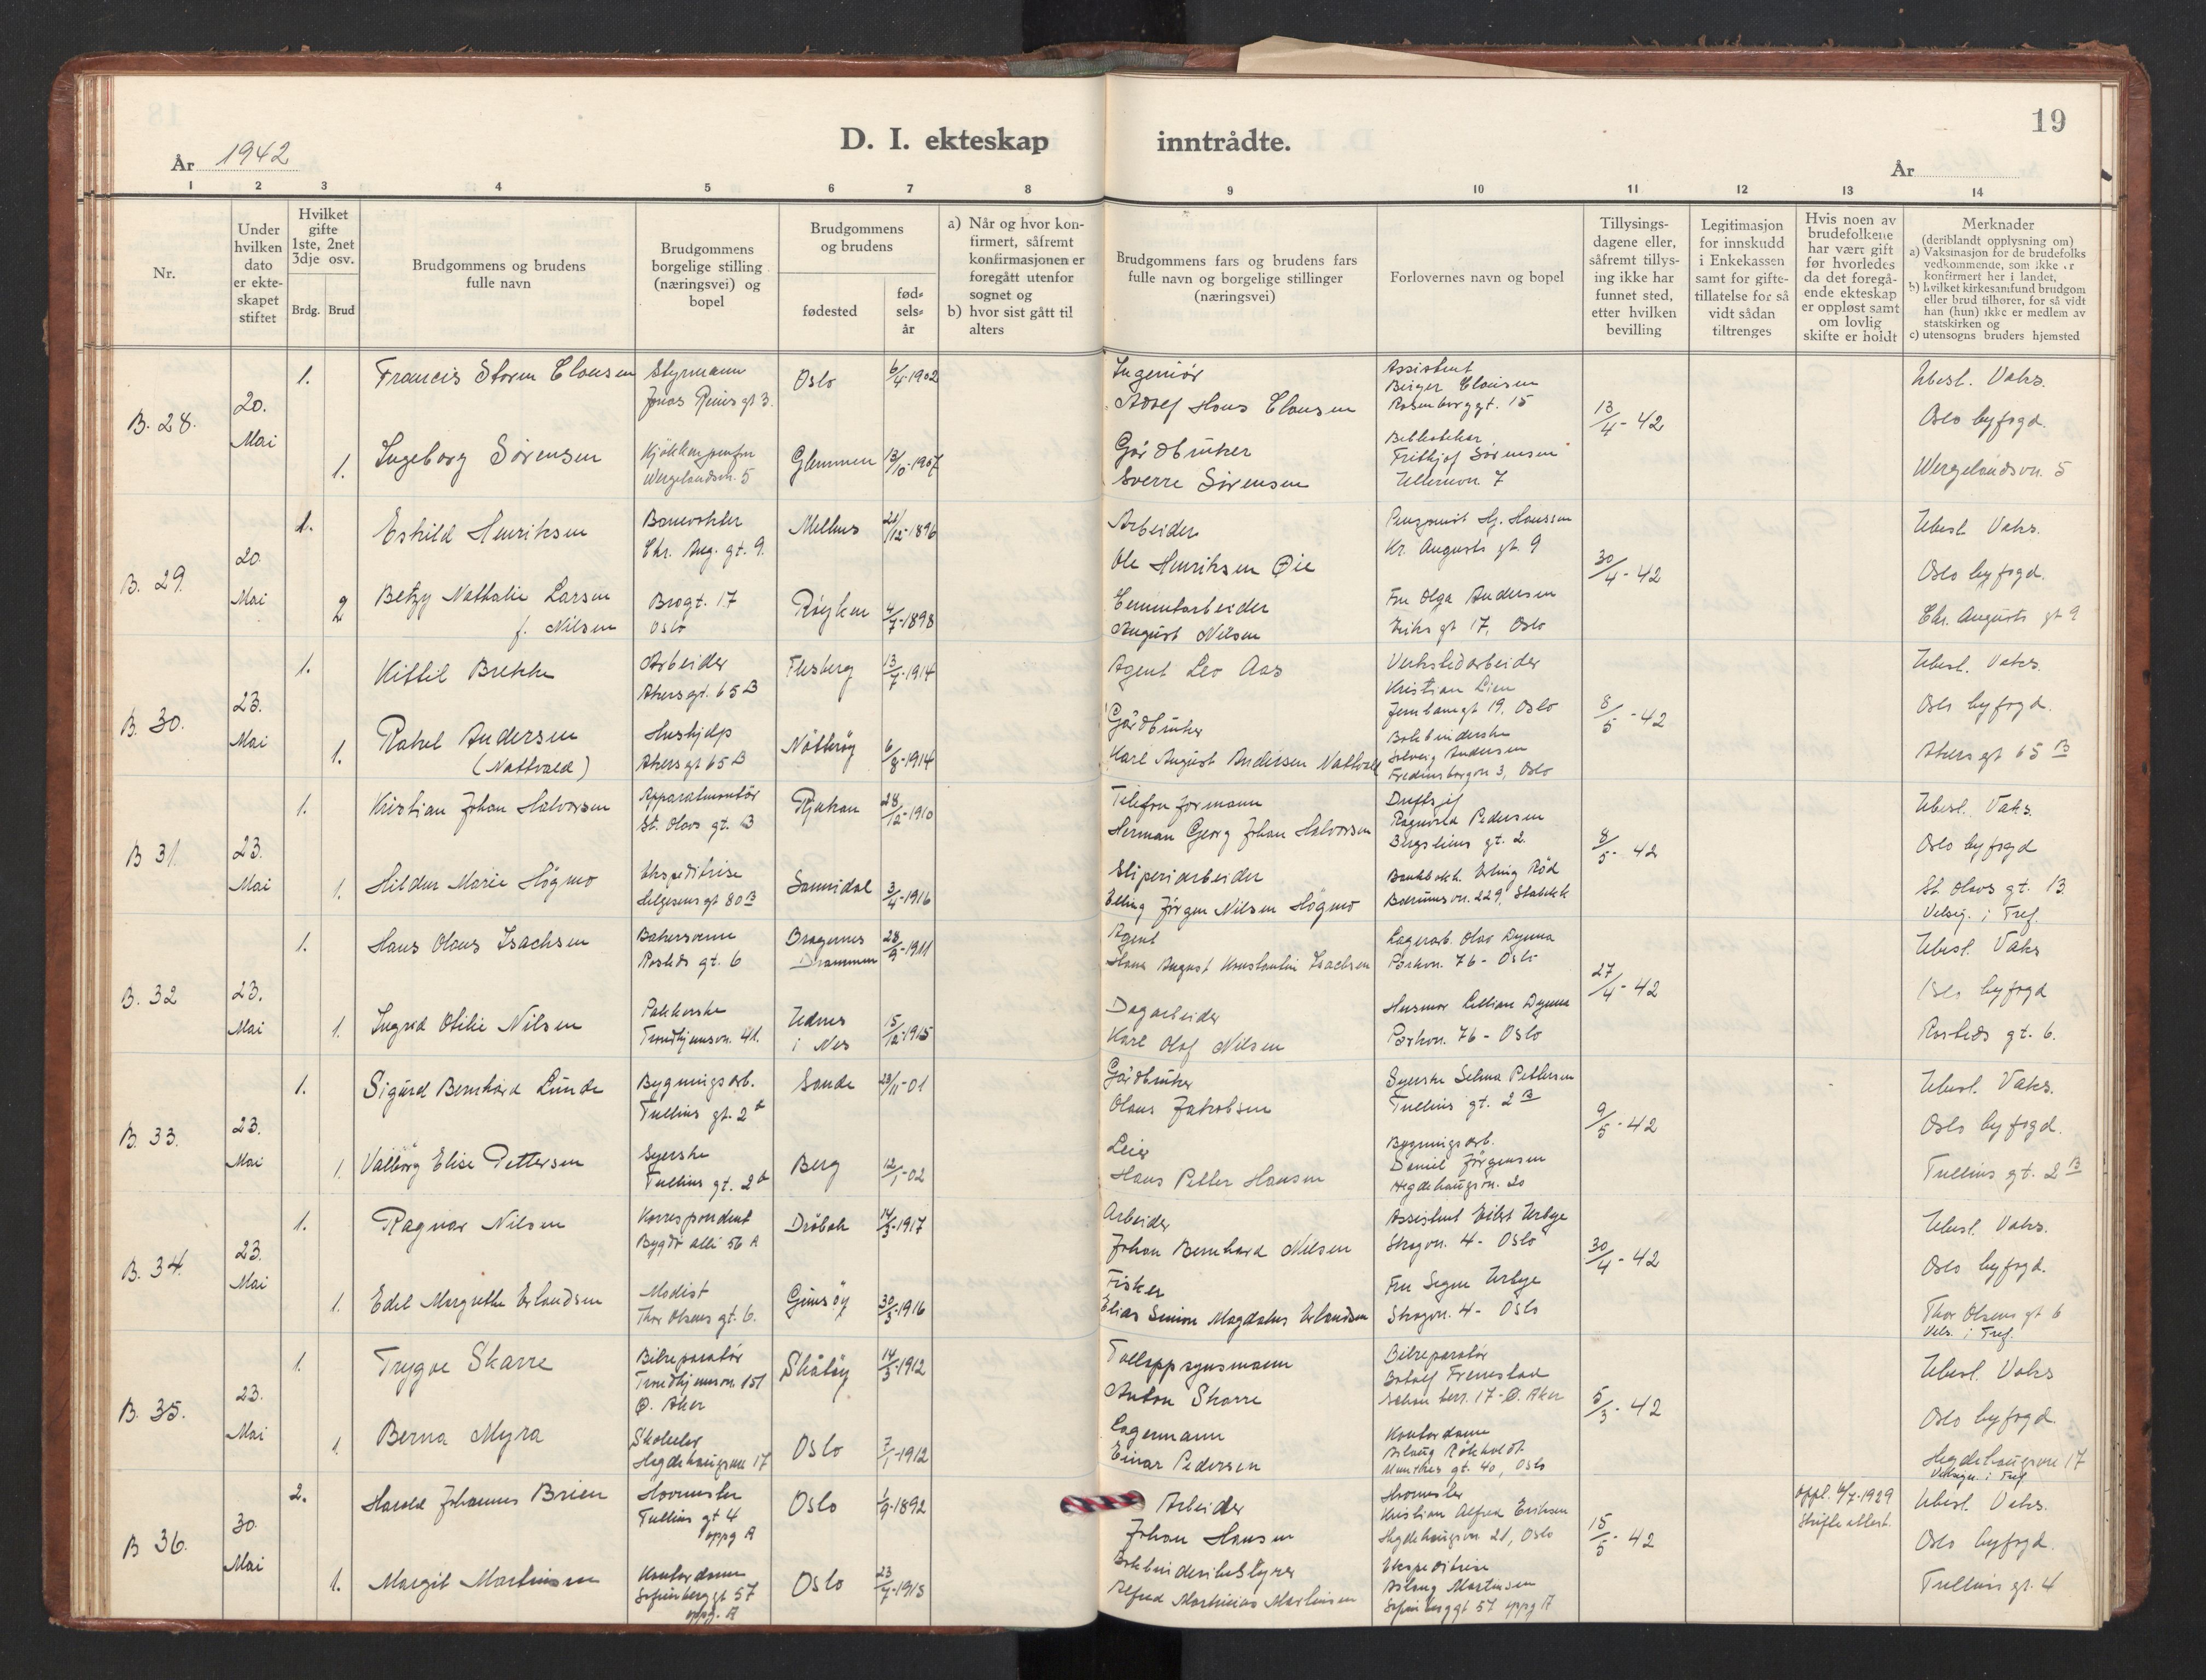 19
D. I. ekteskap inntrådte.
År 1942
År
1 2 3 4 5 6 7 8 9 10 11 12 13 14
Nr.
Under hvilken dato er ekte-skapet stiftet
Hvilket gifte 1ste, 2net 3dje osv.
Brdg. Brud
Brudgommens og brudens fulle navn
Brudgommens borgelige stilling (næringsvei) og bopel
Brudgommens og brudens
fødested
fød-sels-år
a) Når og hvor kon-firmert, såfremt konfirmasjonen er foregått utenfor sognet og
b) hvor sist gått til alters
Brudgommens fars og brudens fars fulle navn og borgelige stillinger (næringsvei)
Forlovernes navn og bopel
Tillysings-dagene eller, såfremt tillys-ing ikke har funnet sted, etter hvilken bevilling
Legitimasjon for innskudd i Enkekassen samt for gifte-tillatelse for så vidt sådan tiltrenges
Hvis noen av brudefolkene har vært gift før hvorledes da det foregå-ende ekteskap er oppløst samt om lovlig skifte er holdt
Merknader
(deriblandt opplysning om)
a) Vaksinasjon for de brudefolks vedkommende, som ikke er konfirmert her i landet,
b) hvilket kirkesamfund brudgom eller brud tilhører, for så vidt han (hun) ikke er medlem av statskirken og
c) utensogns bruders hjemsted
B. 28. 20. Mai
1. Francis Storm Clausen
Styrmann
Jonas Reins gt 3.
Oslo 6/4-1902
Ingeniör
Adolf Hans Clausen
Assistent
Birger Clausen
Rosenborggt. 15
13/4-42
Ubesl. Vaks.
Oslo byfogd.
1. Ingeborg Sörensen
Wergelandsvn. 5
Glemmen 13/10-1907
Gårdbruker
Sverre Sörensen
Bibliotekar
Fritjof Sörensen
Ullernvn. 7
Wergelandsvn. 5
B. 29. 20. Mai
1. Eskild Henriksen
Banevokter
Chr. Aug. gt. 9.
Melhus 21/12-1896
Arbeider
Ole Henriksen Øie
Hj. Hanssen
Kr. Augusts gt. 9
30/4-42
Ubesl. Vaks.
Oslo byfogd.
2 Betzy Nathalie Larsen
f. Nilsen
Brogt. 17
Oslo
Röyken 4/7-1898
Cementarbeider
August Nilsen
Fru Olga Andersen
Eriks gt 17, Oslo
Chr. Augusts gt 9
B. 30. 23. Mai
1. Kittil Brekke
Arbeider
Akersgt. 65 B
Flesberg 13/7-1914
Agent Leo Aas
Verkstedarbeider
Kristian Lien
Jernbanegt 19, Oslo
8/5-42
Ubesl. Vaks.
Oslo byfogd.
1. Rakel Andersen
(Nattvald)
Hushjelp
Akersgt 65 B
Nötteröy 6/8-1914
Gårdbruker
Karl August Andersen Nattvald
Bokbinderske
Solveig Andersen
Fredensborgvn 3, Oslo
Akersgt 65 B
B 31. 23. Mai
1. Kristian Johan Halvorsen
Apparatmontör
St. Olavs gt. 13
Rjukan 28/12-1910
Telefonformann
Herman Georg Johan Halvorsen
Driftsj.
Ragnvald Pedersen
Bergsliens gt. 2.
8/5-42
Ubesl. Vaks.
Oslo byfogd
1. Hildur Marie Högmo
Ekspeditrise
Helgesens gt 80 B
Sannidal 3/4-1916
Sliperiarbeider
Elling Jörgen Nilsen Högmo
Bankbokh. Erling Röd
Bærumsvn. 229, Stabekk
St. Olavs gt. 13
Velsig. i Tref.
B. 32 23. Mai
1. Hans Olaus Isachsen
Bakersvenn
Rosteds gt. 6
Bragernes
Drammen
28/9-1911
Agent
Hans August Konstantin Isachsen
Lagerarb. Olav Dynna
Parkvn. 76 - Oslo
27/4-42
Ubesl. Vaks
Oslo byfogd
1. Ingrid Otilie Nilsen
Pakkerske
Trondhjemsvn. 41.
Udnes
i Nes
15/12-1915
Dagarbeider
Karl Olaf Nilsen
Husmor Lillian Dynna
Parkvn. 76 - Oslo
Rosteds gt. 6.
B. 33. 23. Mai
1. Sigurd Bernhard Lunde
Bygningsarb.
Tullins gt. 2 b
Sande 23/11-01
Gårdbruker
Olaus Jakobsen
Syerske Selma Pettersen
Tullins gt. 2 B
9/5-42
Ubesl. Vaks.
Oslo byfogd.
1. Valborg Elise Pettersen
Syerske
Tullins gt. 2 b
Berg 12/1-02
Leier
Hans Petter Hansen
Bygningsarb.
Daniel Jörgensen
Hegdehaugsvn. 20
Tullins gt. 2 B
B. 34. 23. Mai
1. Ragnar Nilsen
Korrespondent
Bygdö allé 56 A
Dröbak 14/3-1917
Arbeider
Johan Bernhard Nilsen
Assistent Eilert Urbye
Skogvn. 4 - Oslo
30/4-42
Ubesl. Vaks.
Oslo byfogd.
1. Edel Margrethe Erlandsen
Modist
Thor Olsens gt. 6.
Gimsöy 30/3-1916
Fisker
Elias Simon Magdalus Erlandsen
Fru Signe Urbye
Skogvn. 4 - Oslo
Thor Olsens gt 6
Vels. i Tref.
B. 35. 23. Mai
1. Trygve Skarre
Bilreparatör
Trondhjemsvn. 151
Ö. Aker
Skåtöy 14/3-1912
Tolloppsynsmann
Anton Skarre
Bilreparatör
terr. 17 - Ö. Aker
5/3-42
Ubesl. Vaks
Oslo byfogd.
1. Berna Myra
Hegdehaugsvn 17
Oslo 7/1-1912
Lagermann
Einar Pedersen
Kontordame
Aslaug Rökholdt
Munthes gt. 40, Oslo
Hegdehaugsvn 17
Velsign. i Tref.
B 36. 30. Mai
2. Harald Johannes Brien
Hovmester
Tullins gt 4
oppg A
Oslo 1/9-1892
Arbeider
Johan Hansen
Hovmester
Kristian Alfred Eriksen
Hegdehaugsvn 21, Oslo
15/5-42
oppl. 6/7-1929
Skifteattest.
Ubesl. Vaks.
Oslo byfogd.
1. Margit Martinsen
Kontordame
Sofienberggt 57
oppg. A
Oslo 23/7-1913
Bokbinderibestyrer
Alfred Martinius Martinsen
Ekspeditrise
Aslaug Martinsen
Sofienberggt 57 oppg A
Tullins gt. 4